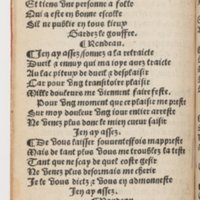 Et tiens une personne a folle
Qui a este en bonne escolle
Sil ne publie en tous lieux
Gardez le gouffre.
¶ Rondeau.
¶ Jen ay assez, sonnez a la retraicte
Dueil & ennuy qui ma ioye avez traicte
Au lac piteux de dueil & desplaisir
Car pour ung transitoire plaisir
Mille douleurs me viennent faire feste.
Pour ung moment que plaisir me preste
Sur moy douleur vous tout entier arreste
Ne venez plus dont le mien cueur saisir
Jen ay assez.
¶ De vous laisser souventesfois mappreste
Mais de tant plus vous me troublez la teste
Tant que ne scay de quel coste gesir
Ne venez plus desormais me cherir
Je le vous dictz & vous en admoneste
Jen ay assez.
¶ Rondeau